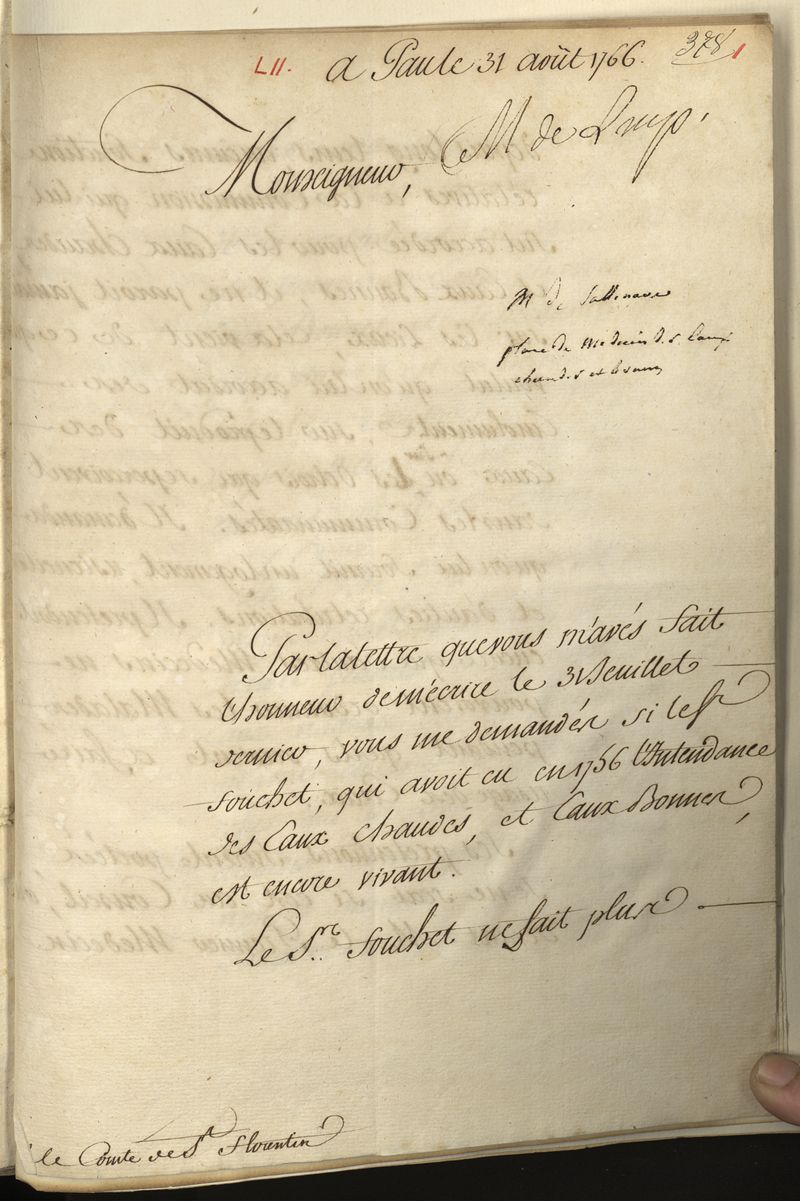 LII. a Pau le 31 août 1766. 378
M de
Monseigneur,
M de Sallenave
place de Medecin d. s. Eaux
chaudes et bonnes
Par la lettre que vous m'avés fait
l'honneur de m'écrire le 31 Jeuillet
dernier, vous me demandés si le Sr
Souchet, qui avoit eu en 1756 l'Intendance
des Eaux chaudes, et Eaux Bonnes,
est encore vivant.
Le Sr. Souchet ne fait plus
le Comte de St. Florentin